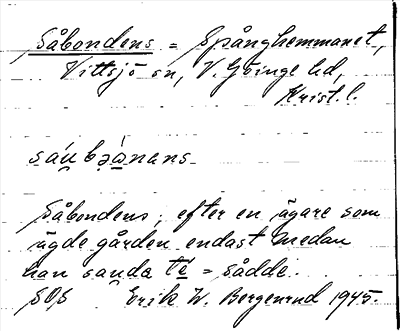 Såbondens = Spånghemmanet,
Vittsjö sn, V. Göinge hd,
Krist. l.
sáu bɔ̀nans
Såbondens, efter en ägare som
ägde gården endast medan
han sauda té = sådde.
SOS Erik W. Bergenrud 1945.